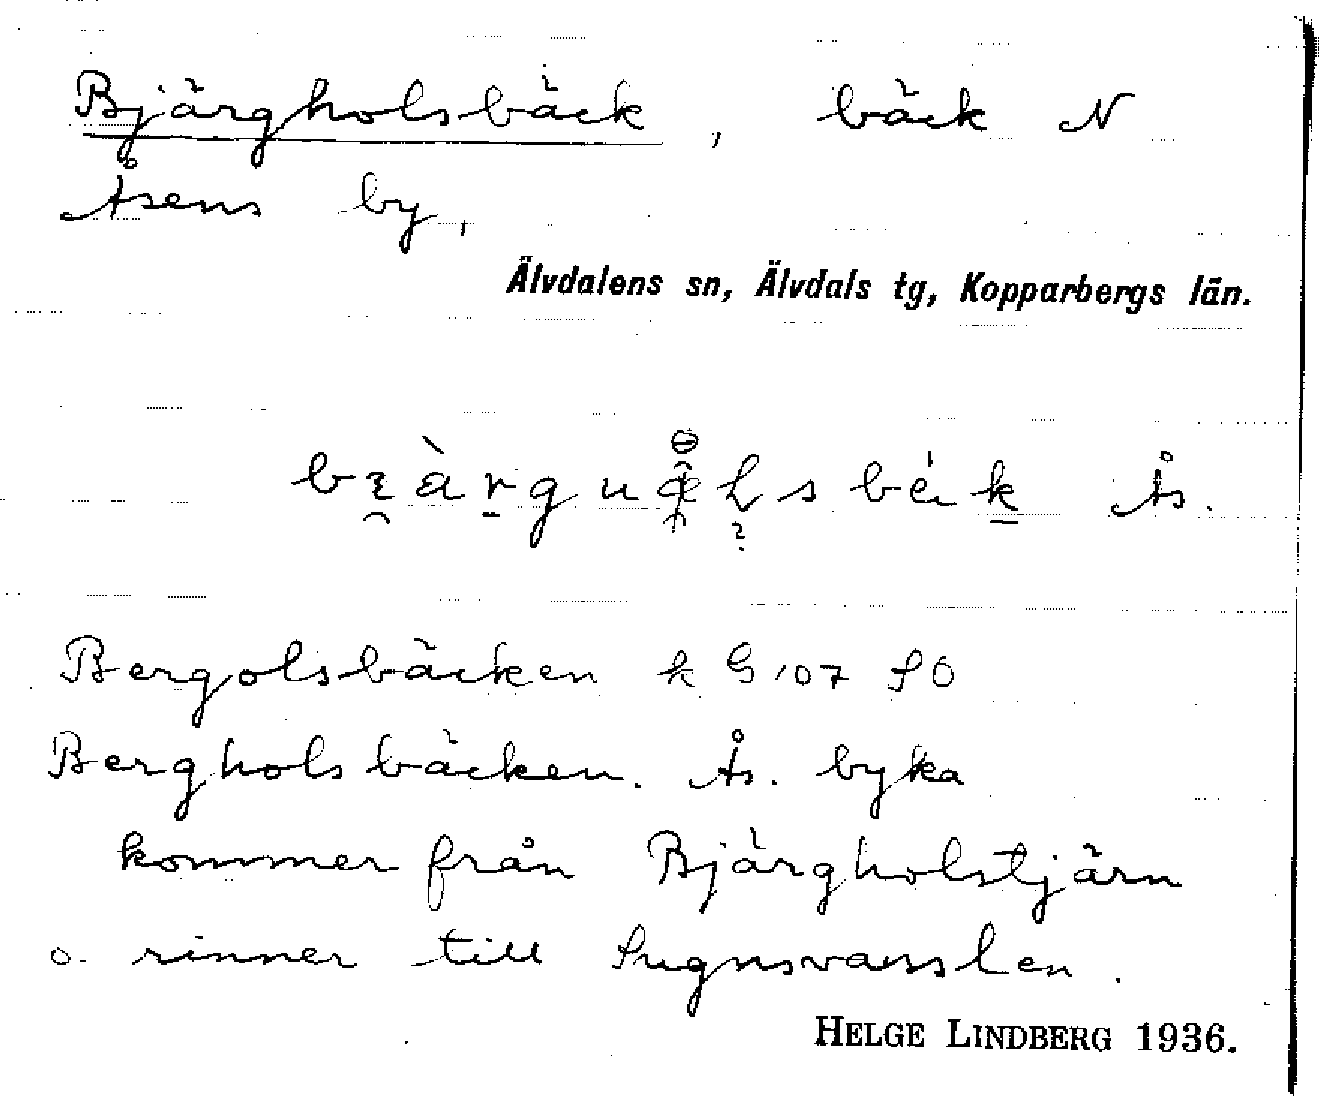 Bjärgholsbäck, bäck N
Åsens by,
Älvdalens sn, Älvdals tg, Kopparbergs län.
Ås.
Bergolsbäcken k G 107 SO
Bergholsbäcken. Ås. byka
kommer från Bjärgholstjärn
o. rinner till
HELGE LINDBERG 1936.